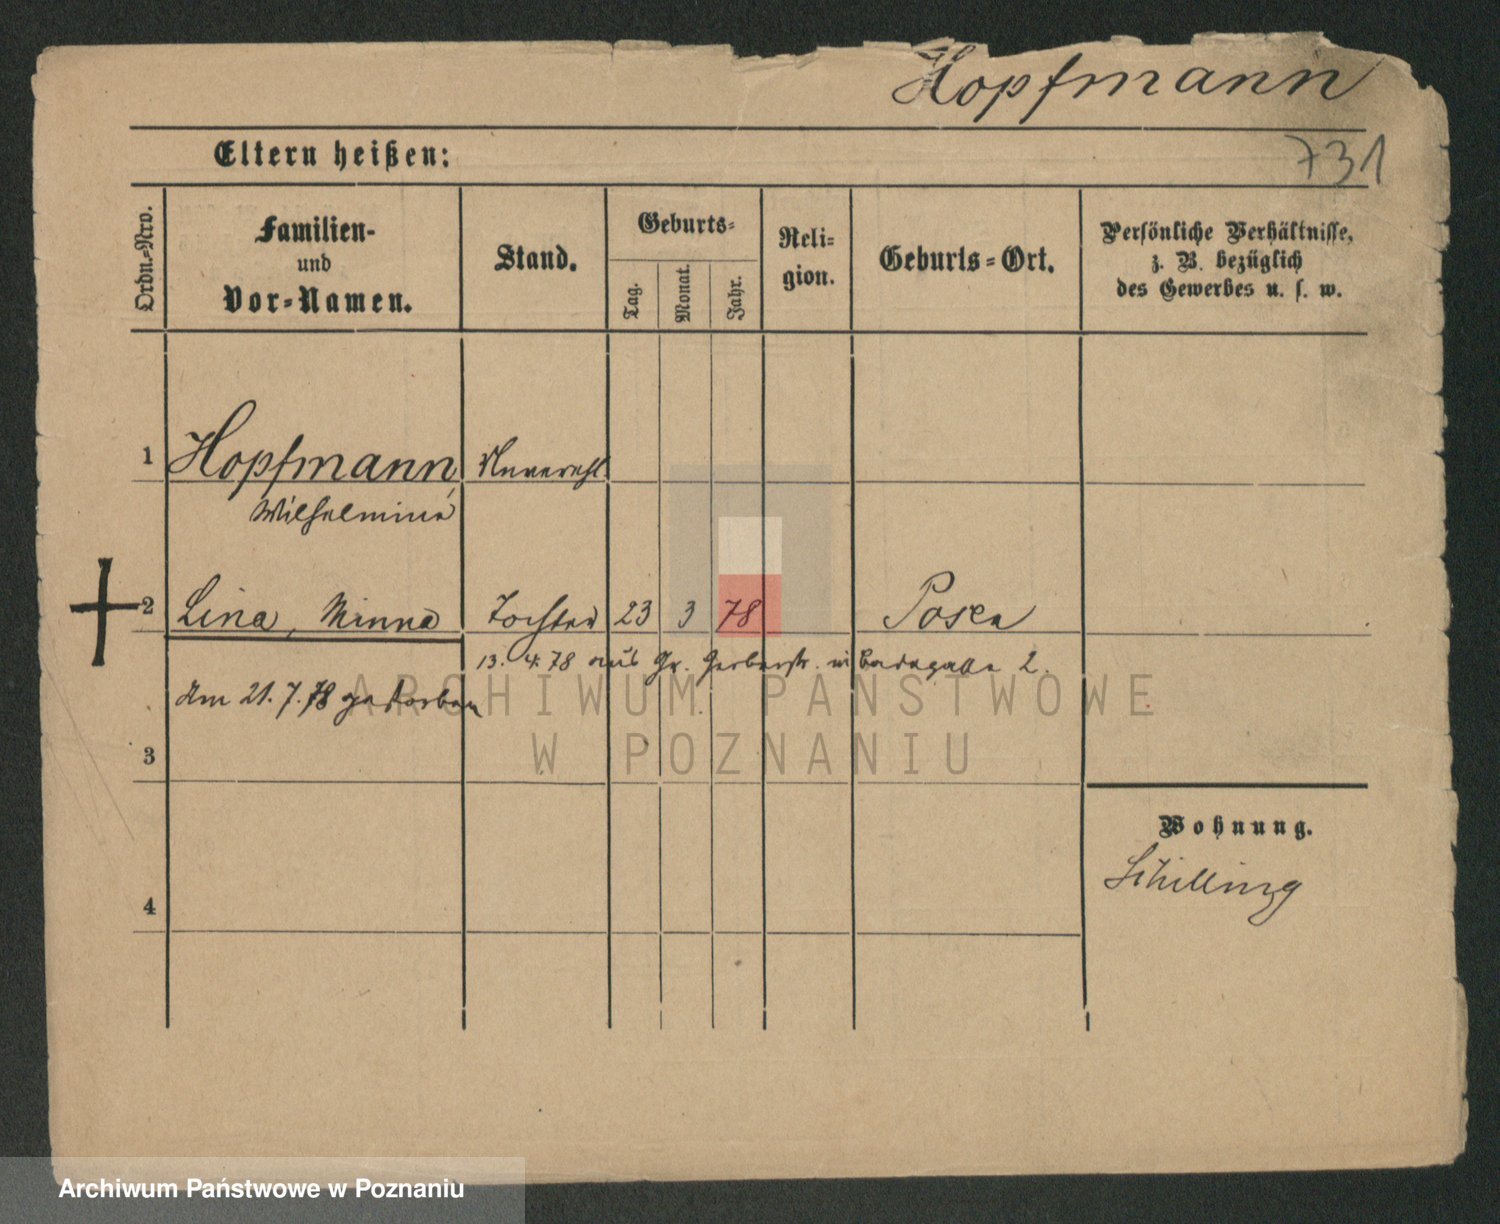 Hopfmann
731
Eltern heißen:
Ordn.-Nro.
Familien-
und
Vor-Namen.
Stand.
Geburts-
Tag.
Monat.
Jahr.
Reli-
gion.
Geburts-Ort.
Persönliche Verhältnisse,
z. B. bezüglich
des Gewerbes u. s. w.
1 Hopfmann, Unverehl.
Wilhelmine
2 Lina, Minna Tochter 23 3 78 Posen
13. 4. 78 aus Gr. Gerberstr. 2.
Am 21. 7. 78 gestorben
3
Wohnung.
Schilling
4
ARCHIWUM PAŃSTWOWE
W POZNANIU
Archiwum Państwowe w Poznaniu